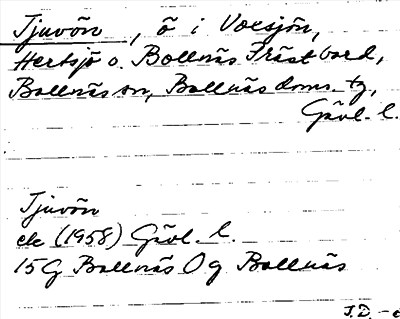 Tjuvön, ö i Voxsjön,
Hertsjö o. Bollnäs Prästbord,
Bollnäs sn, Bollnäs doms. tg,
Gävl. l.
Tjuvön
ek (1958) Gävl. l.
15G Bollnäs O g Bollnäs
J.D. -